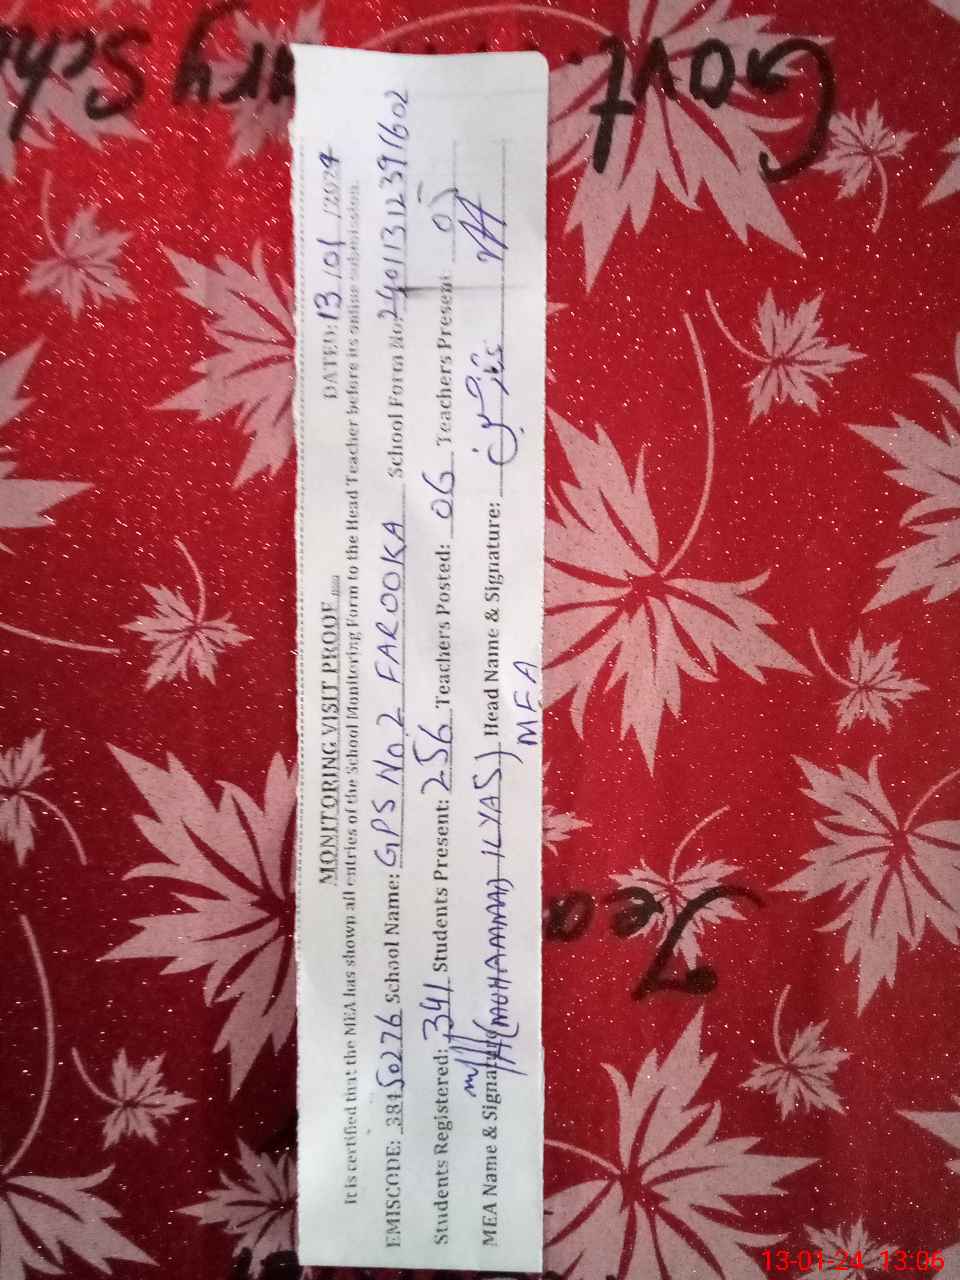 MONITORING VISIT PROOF
DATED: 13/01/2024
It is certified that the MEA has shown all entries of the School Monitoring Form to the Head Teacher before its online submission.
EMISCODE: 38450276 School Name: GPS No 2 FAROOKA School Form No: 24011312391602
Students Registered: 341 Students Present: 256 Teachers Posted: 06 Teachers Present:
MEA Name & Signature (MUHAMMAD ILYAS) Head Name & Signature:
MEA
Govt
13-01-24 13:06